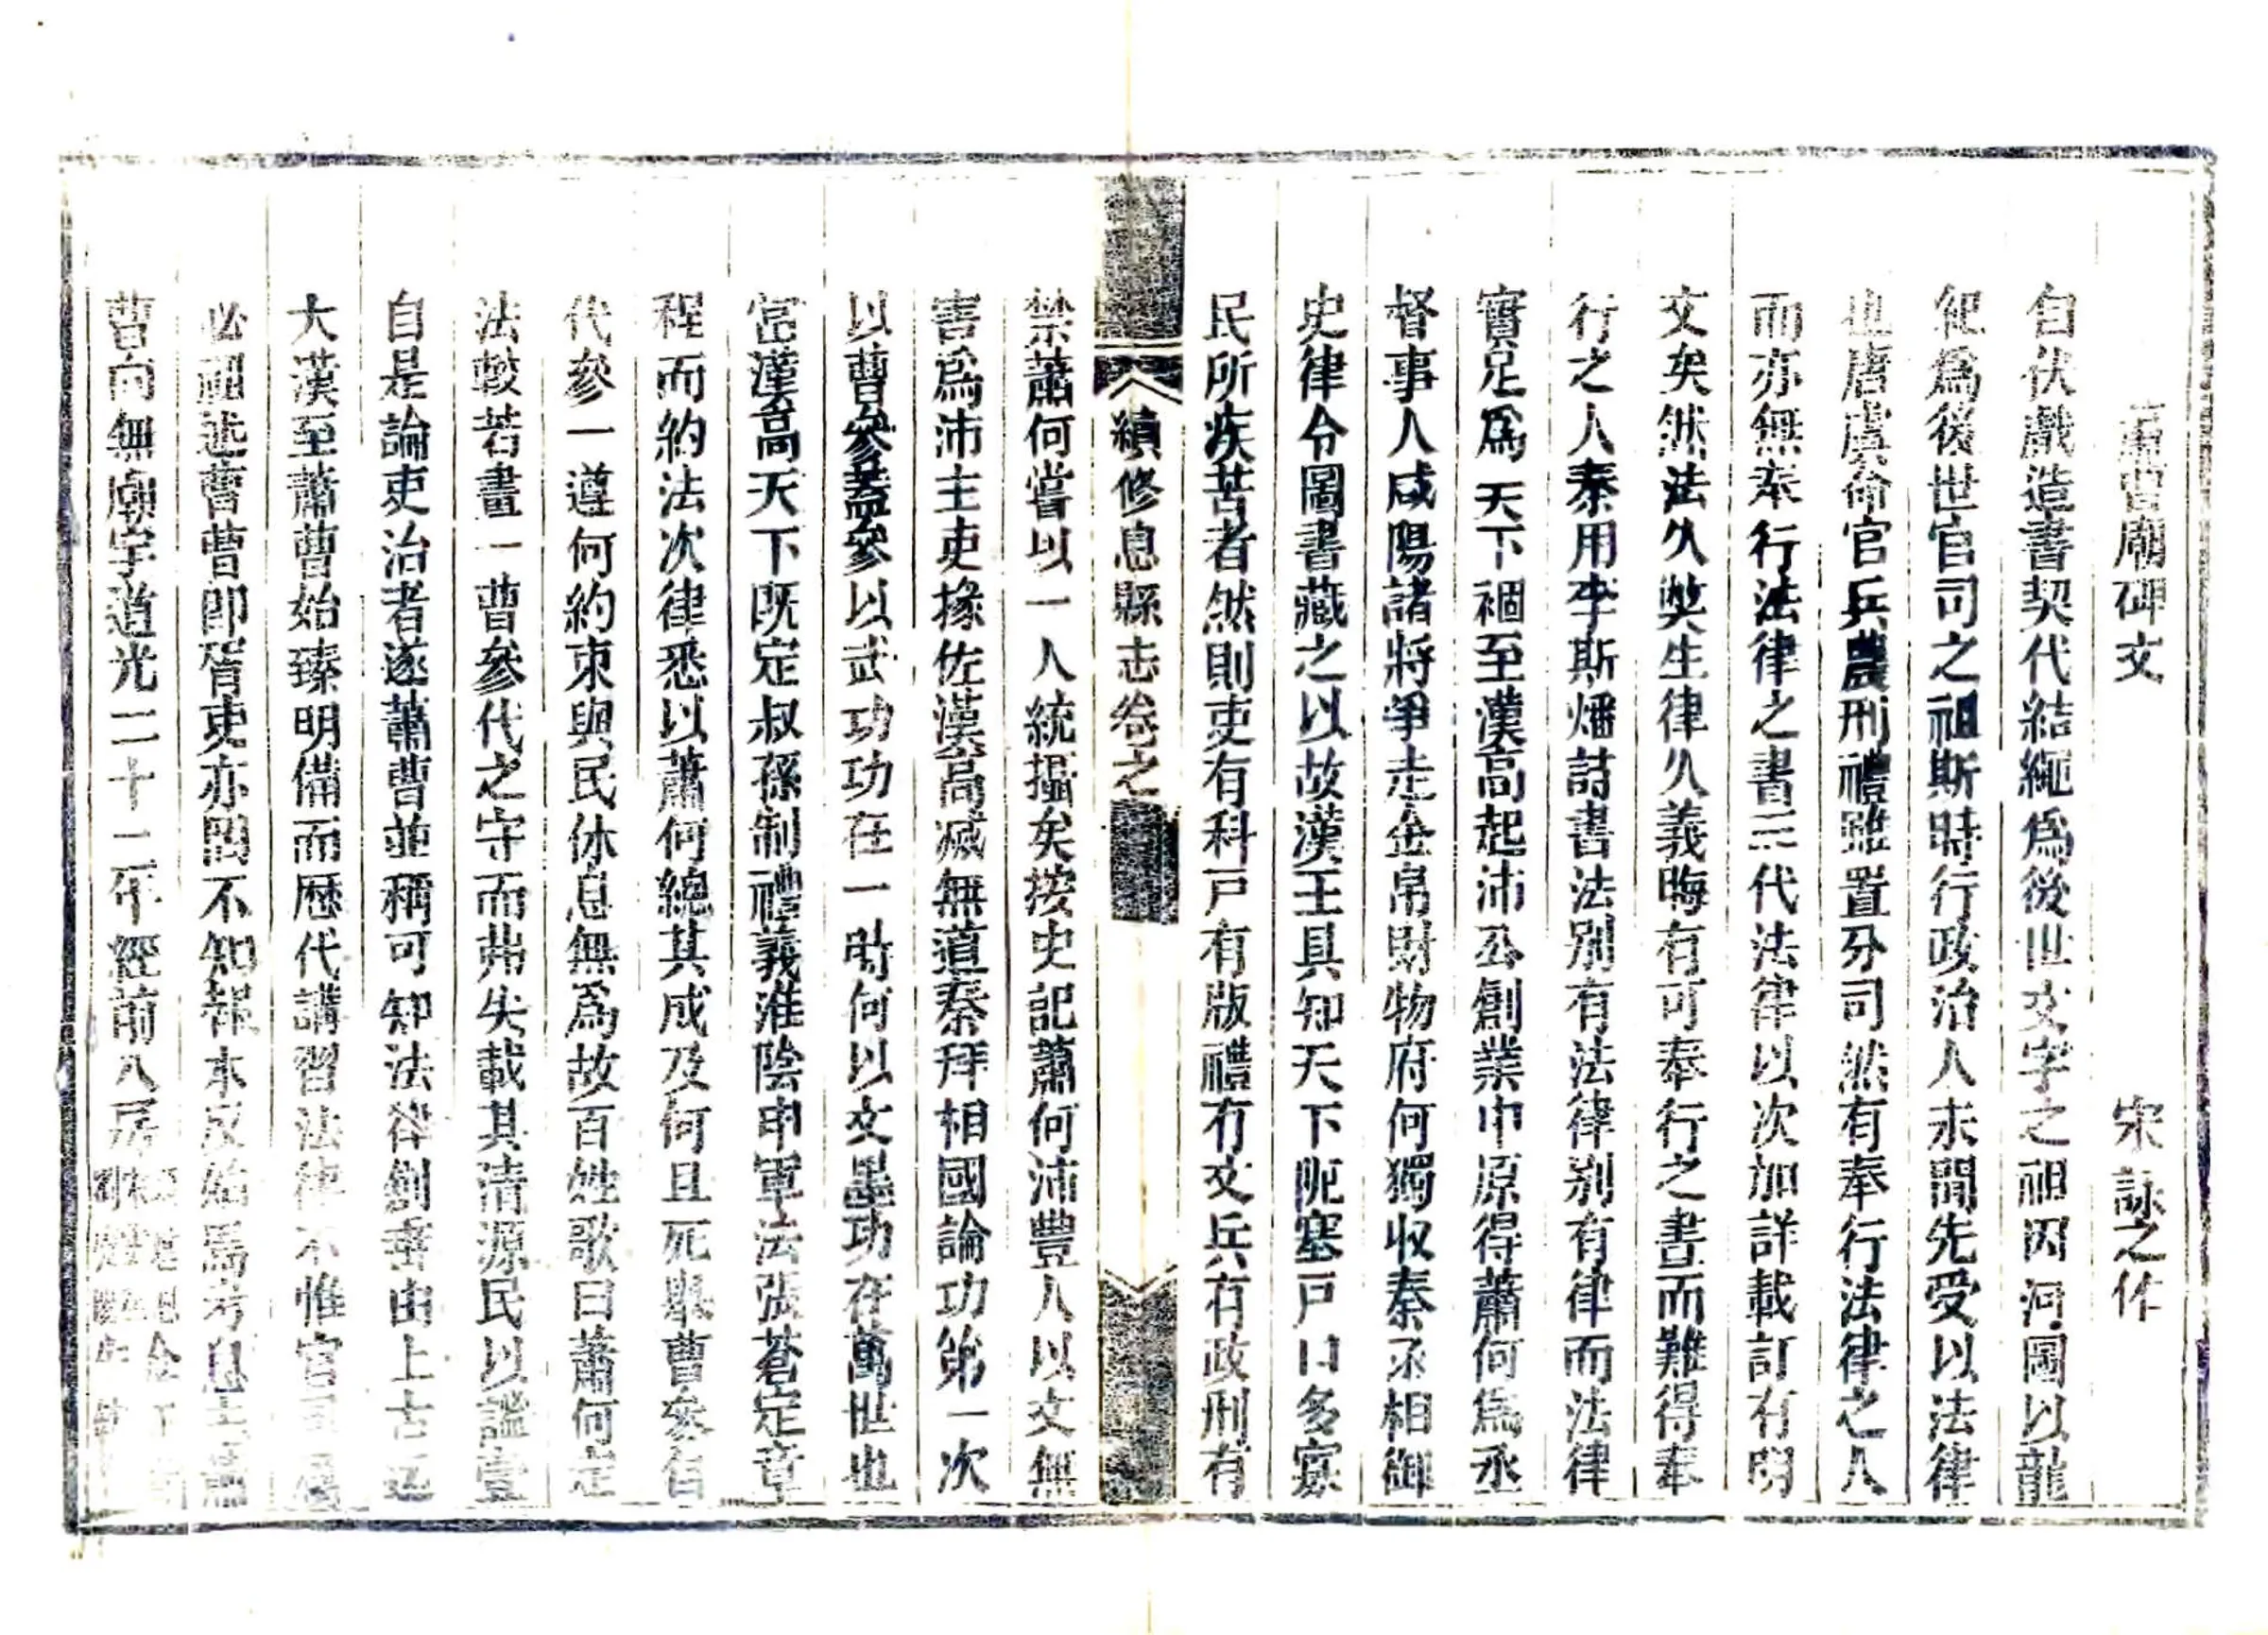 蕭曹廟碑文 宋詠之作
自伏戲造書契代結繩爲後世文字之祖因河圖以龍
紀爲後世官司之祖斯時行政治人未聞先受以法律
也唐虞命官兵農刑禮雖置分司然有奉行法律之人
而亦無奉行法律之書三代法律以次加詳載訂有明
文矣然法久獘生律久義晦有可奉行之書而難得奉
行之人秦用李斯燔詩書法別有法律別有律而法律
實足爲天下禍至漢高起沛公創業中原得蕭何爲丞
督事人咸陽諸將爭走金帛財物府何獨收秦丞相御
史律令圖書藏之以故漢王具知天下阨塞戸口多寡
民所疾苦者然則吏有科戸有版禮有文兵有政刑有
續修息縣志卷之
禁蕭何嘗以一人統攝矣按史記蕭何沛豐人以文無
害爲沛主吏掾佐漢高滅無道秦拜相國論功第一次
以曹參蓋參以武功功在一時何以文墨功在萬世也
當漢高天下既定叔孫制禮義淮陰申軍法張蒼定章
程而約法次律悉以蕭何總其成及何且死舉曹參自
代參一遵何約束與民休息無爲故百姓歌曰蕭何定
法較若畫一曹參代之守而弗失載其清源民以謐壹
自是論吏治者遂蕭曹並稱可知法律創垂由上古迄
大漢至蕭曹始臻明備而歷代講習法律不惟官司
必祖述曹曹卽胥吏亦罔不知報本反始焉考息土蕭
曹向無廟宇道光二十二年經前八房